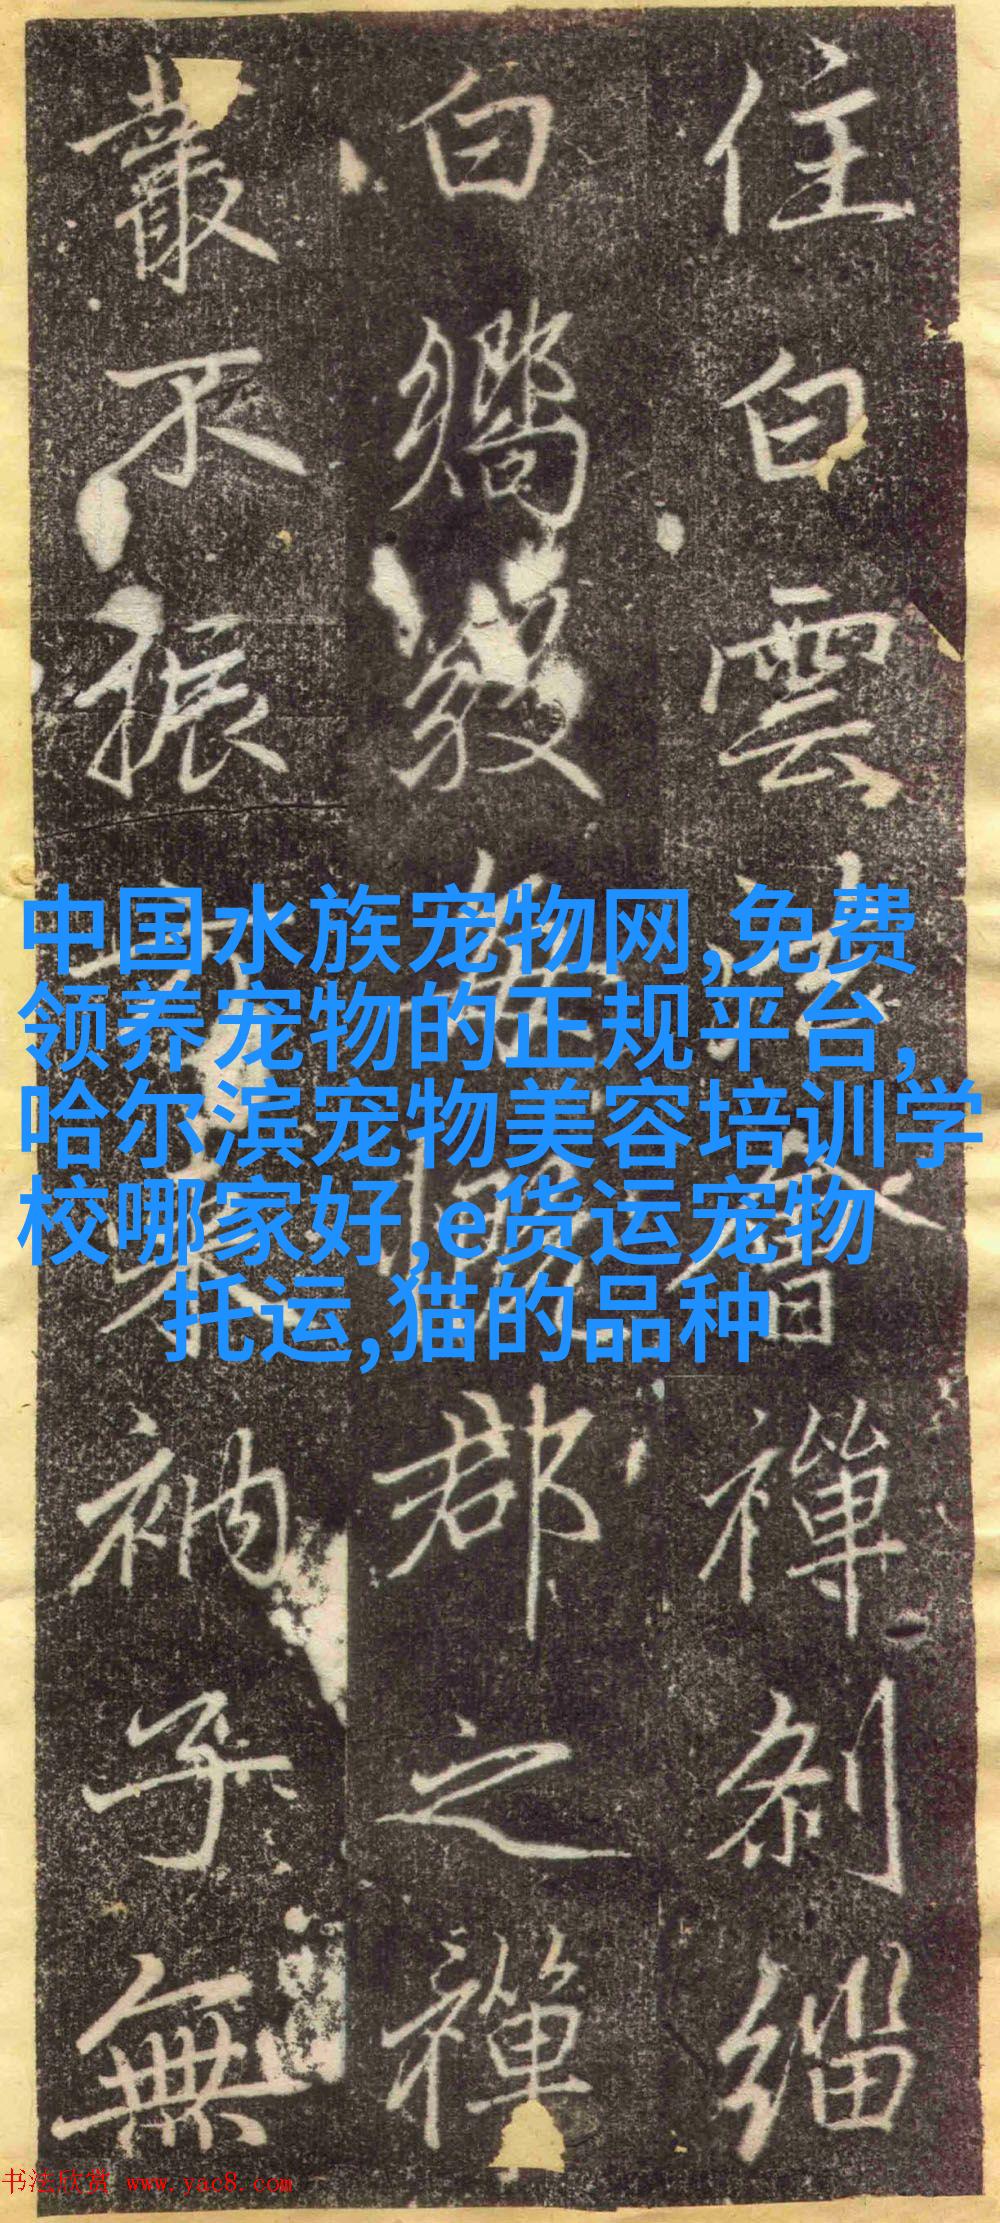 住白雲禪刹緇
白郡之禪
叢不振衲子無
中国水族宠物网,免费
领养宠物的正规平台,
哈尔滨宠物美容培训学
校哪家好,e货运宠物
托运,猫的品种
书法欣赏 www.yac8.com